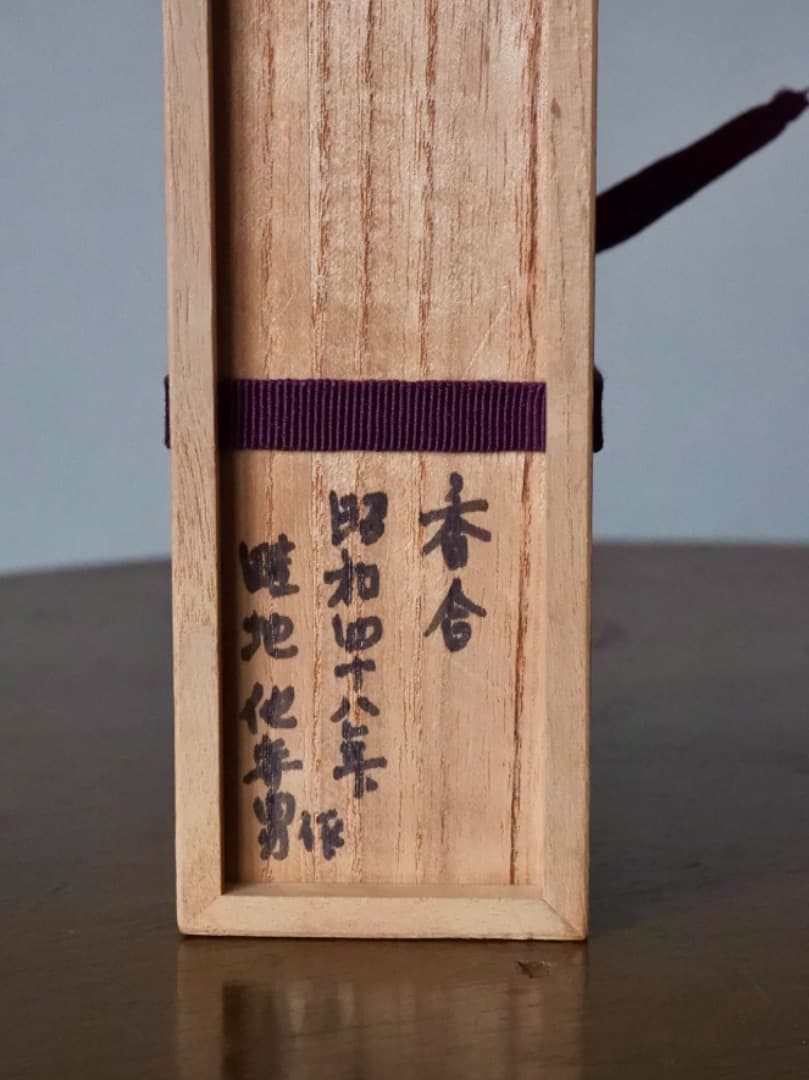 香合
昭和四十八年
畦地 化年男作